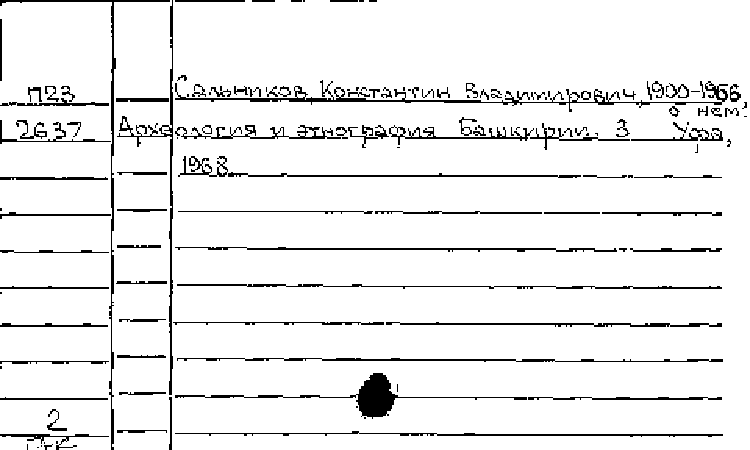 П23 Сальников, Константин Владимирович, 1900-1966,
о нем:
2637 Археология и этнография Башкирии. 3 Уфа,
1968.
2